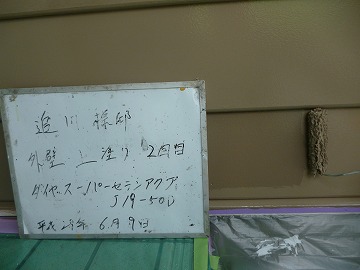 追川様邸
外壁 上塗り 2回目
ダイヤスーパーセランアクア
J19-50D
平成28年 6月9日